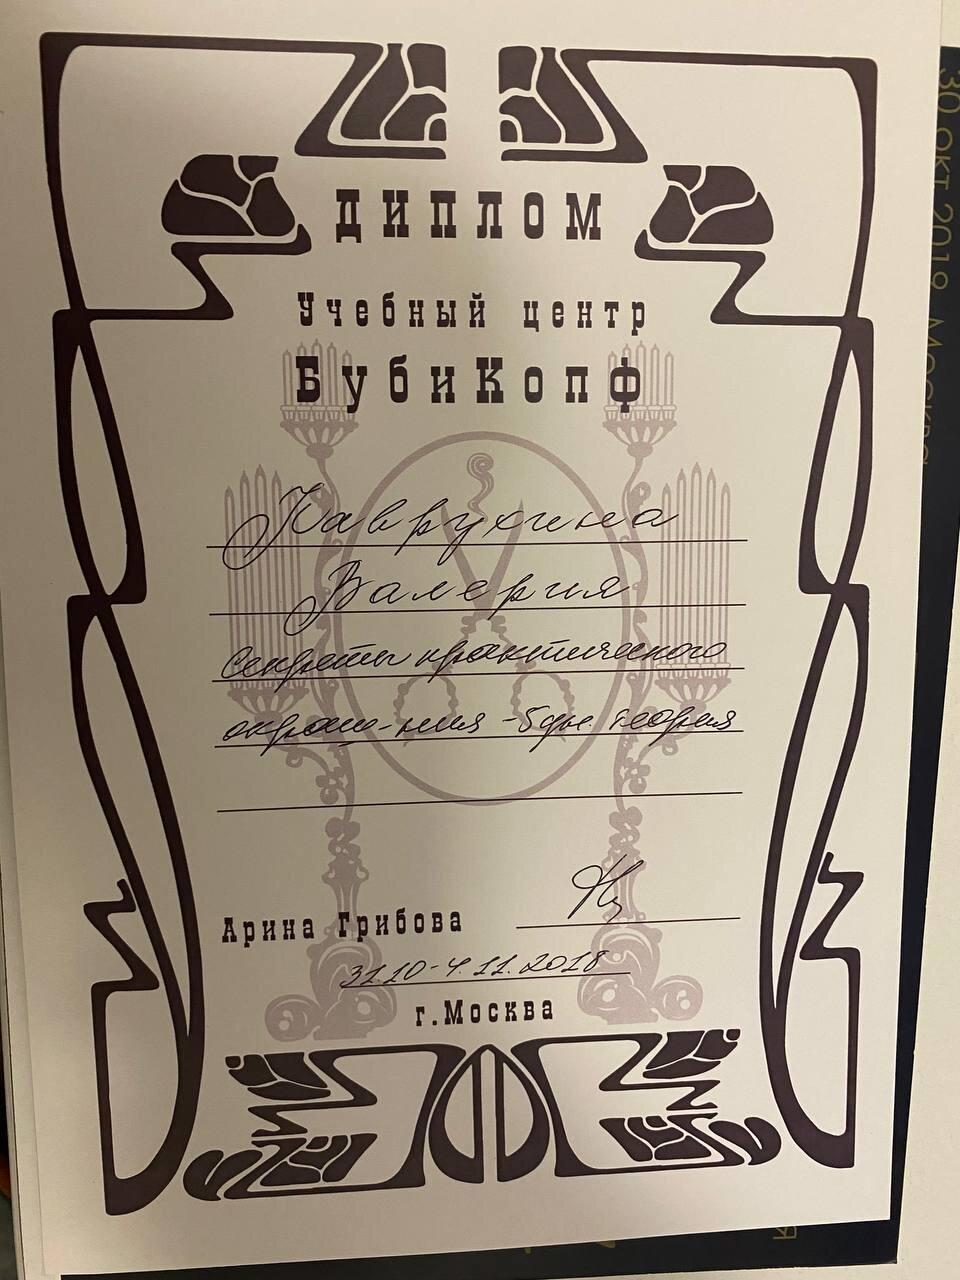 ДИПЛОМ
Учебный центр
БубиКопф
Валерия
Секреты практического
окраш-ния - теория
Арина Грибова
31.10-4.11.2018
г.Москва
30 ОКТ 2019 МОСКВА